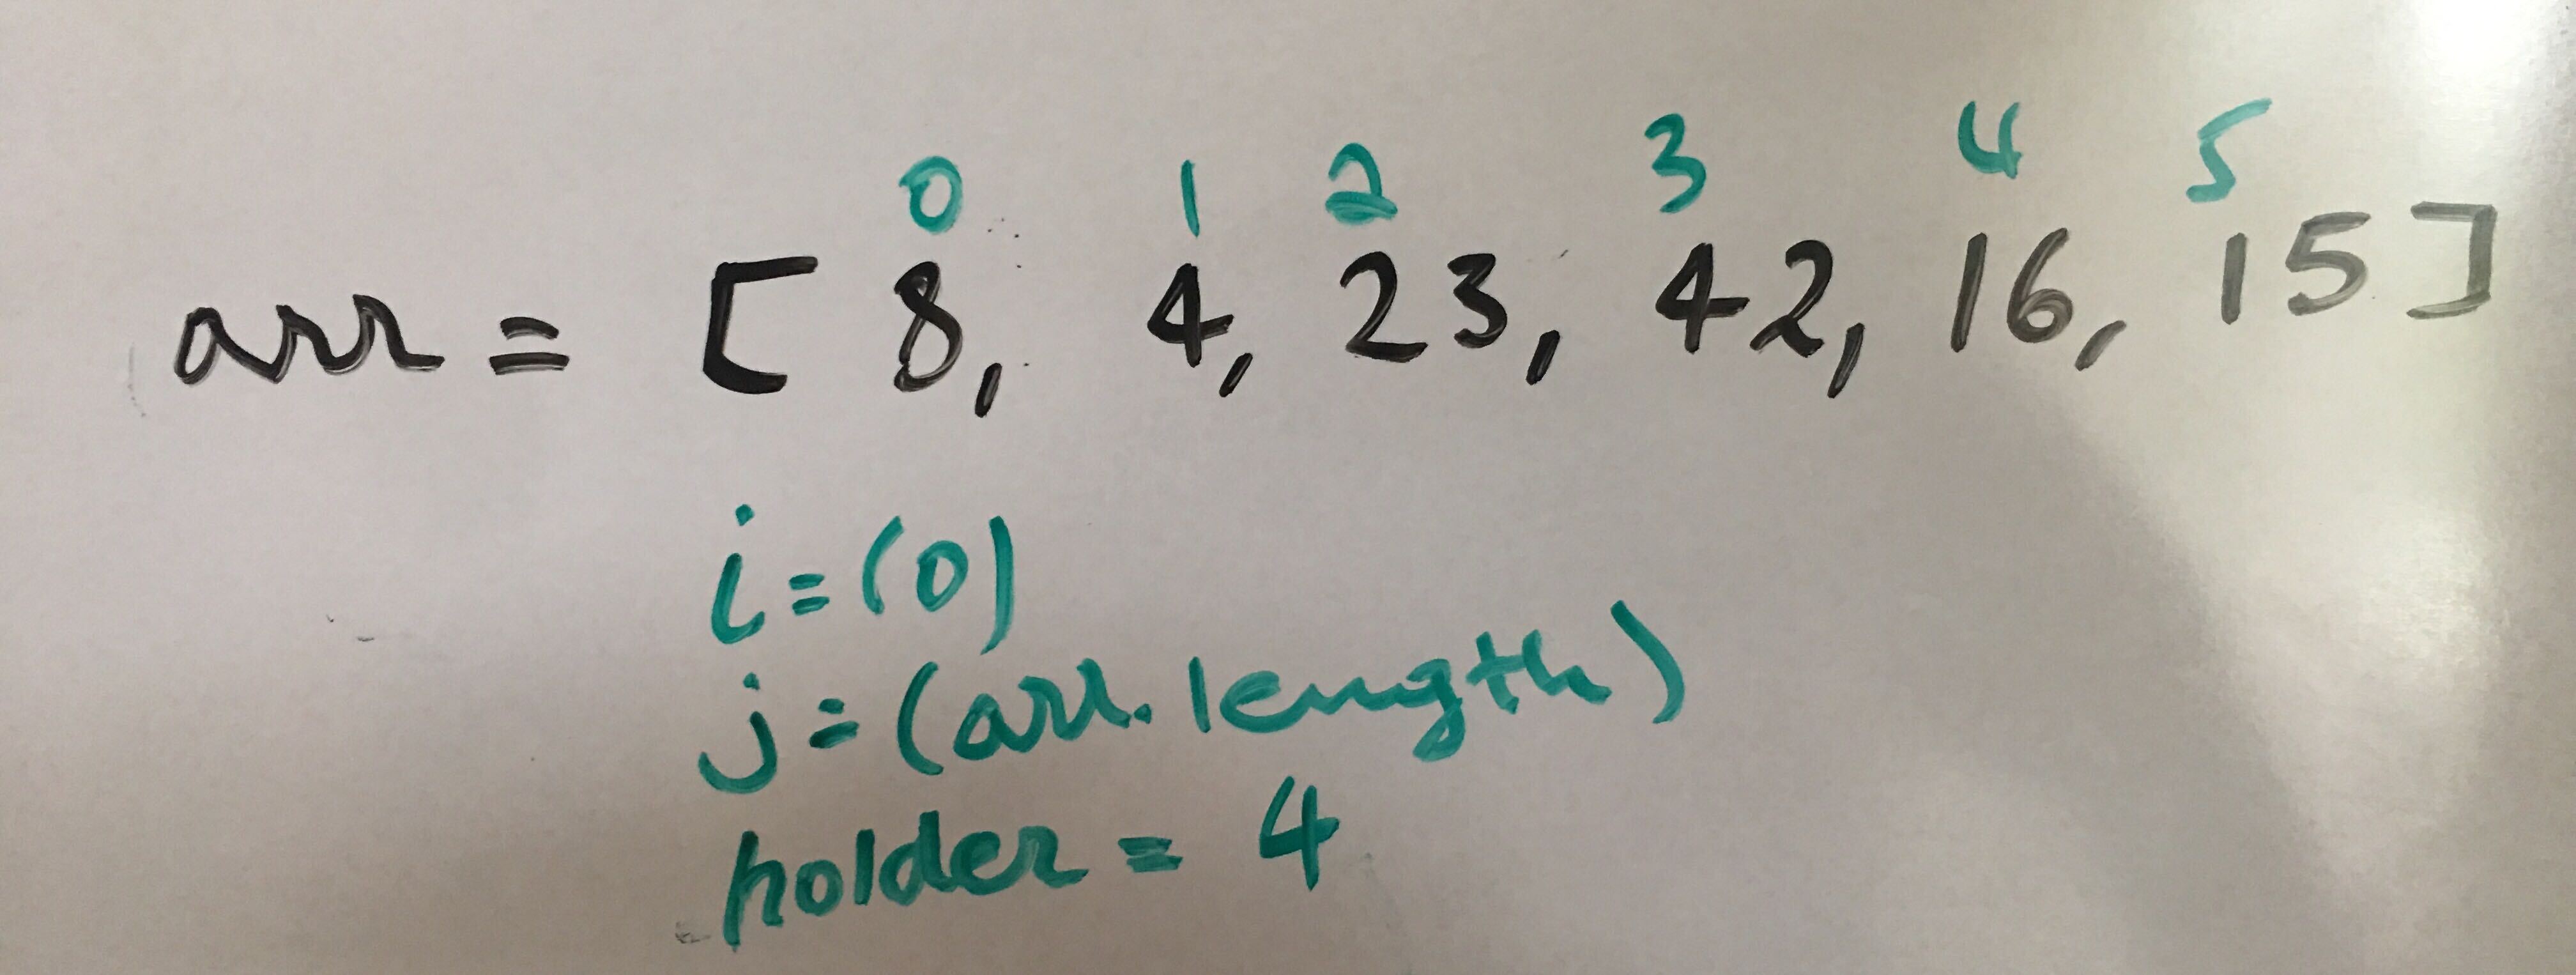 0 1 2 3 4 5
arr = [ 8, 4, 23, 42, 16, 15 ]
i = (0)
j = (arr.length)
holder = 4